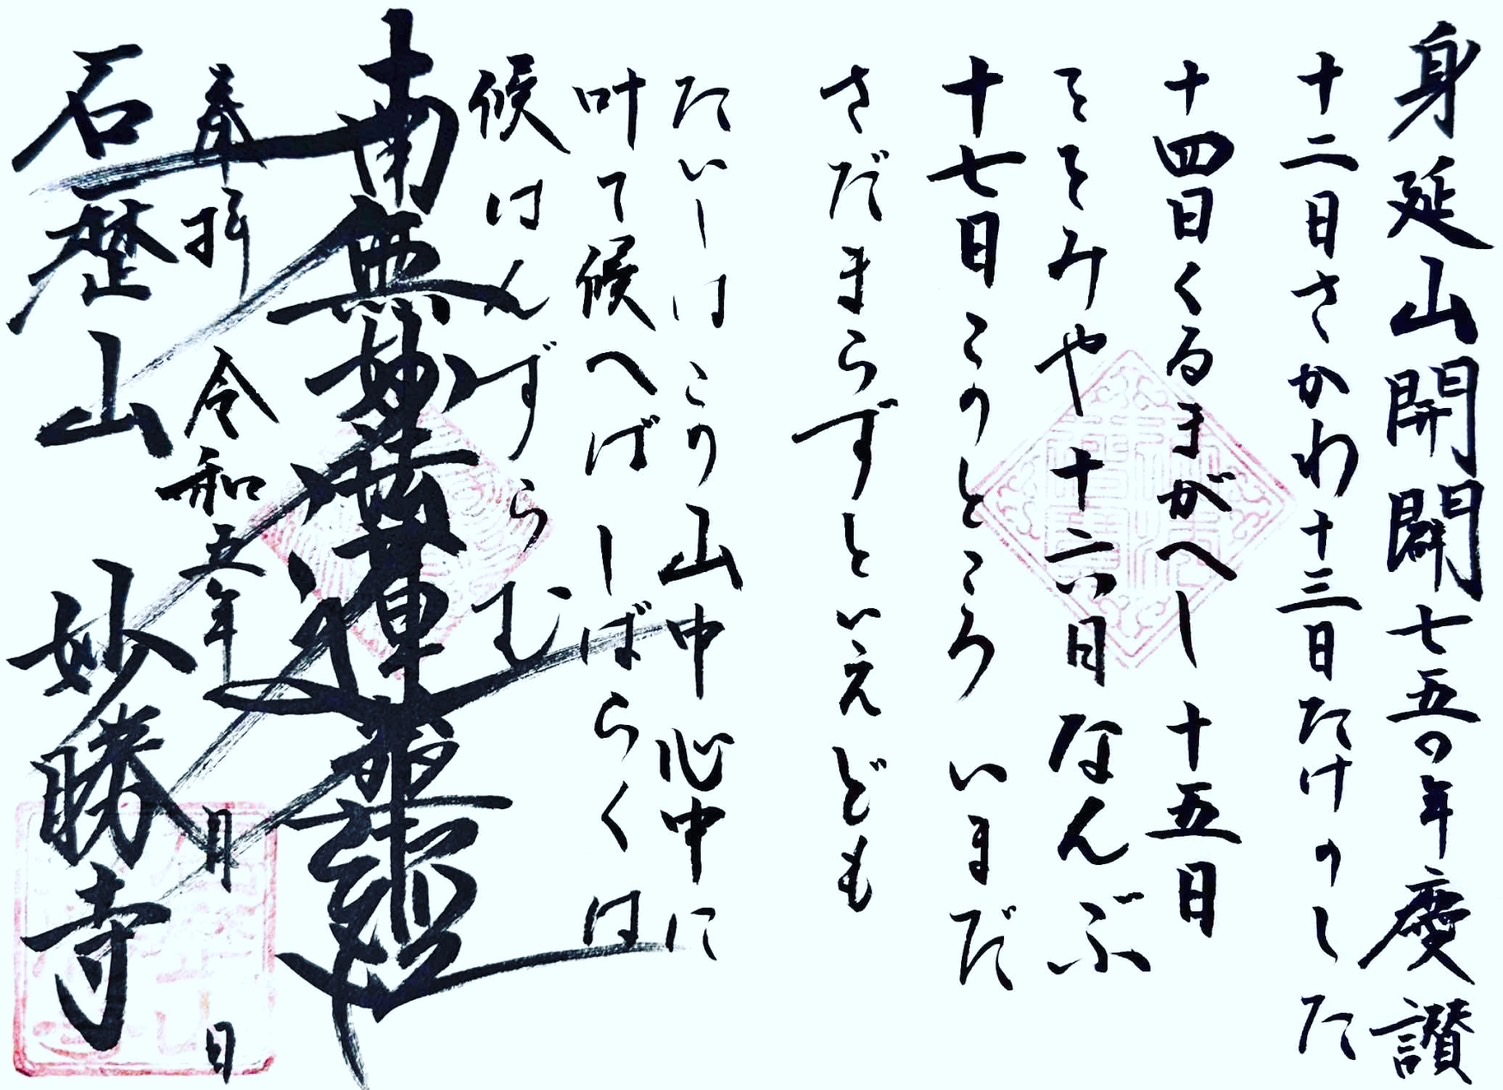 身延山開闢七五〇年慶讃
十二日さかわ十三日たけのした
十四日くるまがへし十五日
ををみや十六日なんぶ
十七日このところ いまだ
さだまらずといえども
たいしはこの山中心中に
叶て候へば しばらくは
候はんずらむ
南無妙法蓮華経
奉拝 令和五年 月 日
石塔山 妙勝寺